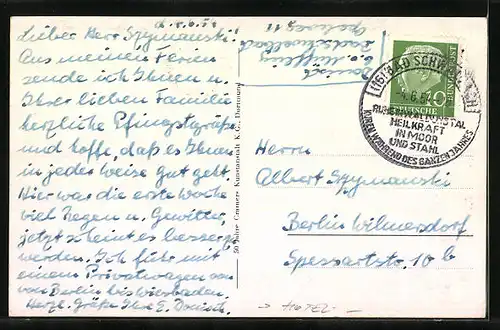 d. 4.6.57
Lieber Herr Szymanski!
Aus meinen Ferien
sende ich Ihnen u.
Ihrer lieben Familie
herzliche Pfingstgrüße
und hoffe, daß es Ihnen
in jeder weise gut geht.
Hier war die erste Woche
viel Regen u. Gewitter,
jetzt scheint es besser z.
werden. Ich fuhr mit
einem Privatwagen von
von Berlin bis Wiesbaden.
Herzl. Grüße Ihre E. Donisch.
50 Jahre Cramers Kunstanstalt K.G., Dortmund
Donisch
DEUTSCHE
BUNDESPOST
10
(16) BAD SCHWALBACH
HEILKRAFT
IN MOOR
UND STAHL
KUREN WÄHREND DES GANZEN JAHRES
Herrn
Albert Szymanski
Berlin Wilmersdorf
Spessartstr. 10 b